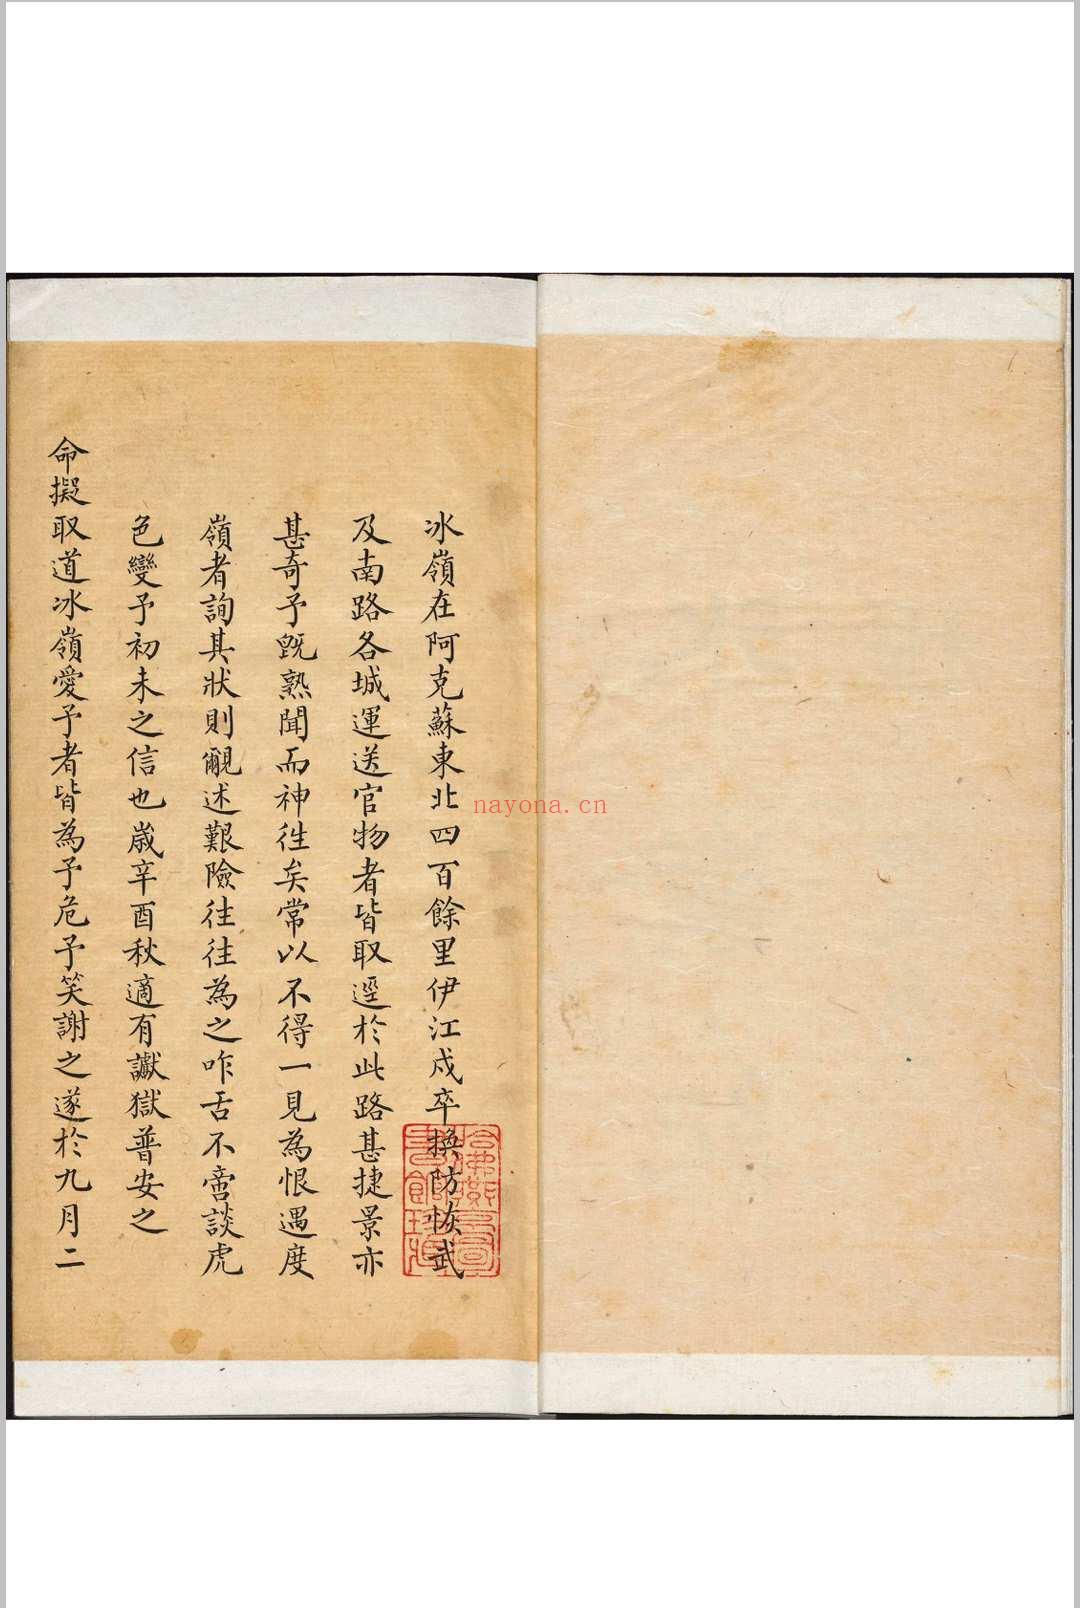 冰嶺在阿克蘇東北四百餘里伊江戍卒換防恢武
及南路各城運送官物者皆取逕於此路甚捷景亦
甚奇予既熟聞而神往矣常以不得一見為恨遇度
嶺者詢其狀則覼述艱險往往為之咋舌不啻談虎
色變予初未之信也歲辛酉秋適有讞獄普安之
命擬取道冰嶺愛予者皆為予危予笑謝之遂於九月二
哈佛燕京圖書館珍藏
nayona.cn